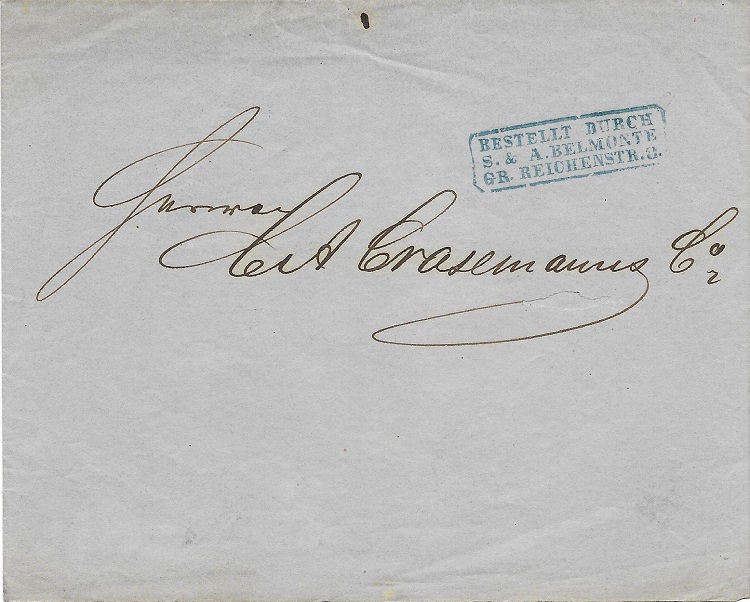 BESTELLT DURCH
S. & A. BELMONTE
GR. REICHENSTR. 3.
Herren
Crasemann & Co